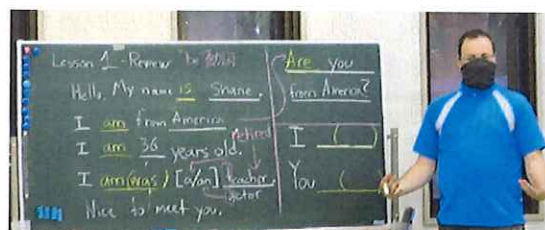 Lesson 1 - Review be 動詞
Hello, My name is Shane.
I am from America
I am 36 years old.
retired
I am (was) [a/an] teacher.
actor
Nice to meet you.
Are you
from America?
I ( )
You ( )